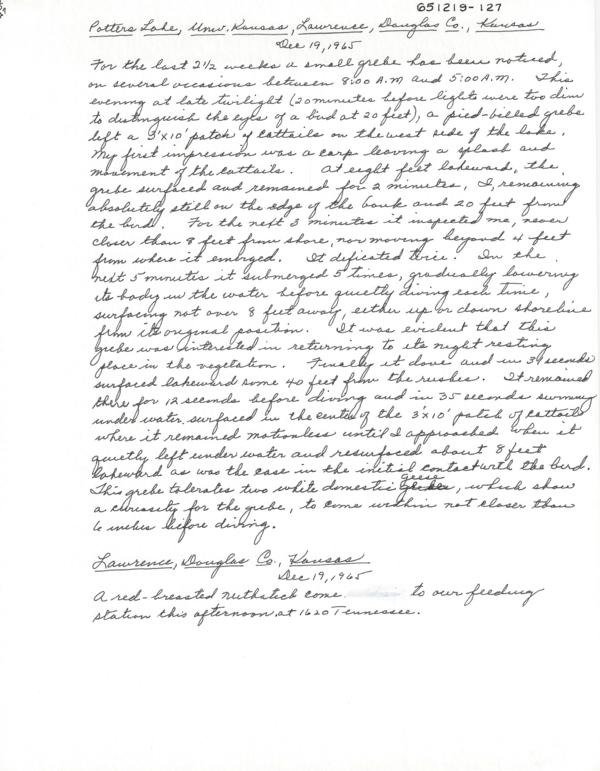 651219-127
Potters Lake, Univ. Kansas, Lawrence, Douglas Co., Kansas
Dec 19, 1965
For the last 2 1/2 weeks a small grebe has been noticed,
on several occasions between 8:00 A.M and 5:00 A.M. This
evening at late twilight (20 minutes before lights were too dim
to distinguish the eyes of a bird at 20 feet), a pied-billed grebe
left a 3'x10' patch of cattails on the west side of the lake.
My first impression was a carp leaving a splash and
movement of the cattails. At eight feet lakeward, the
grebe surfaced and remained for 2 minutes, I remaining
absolutely still on the edge of the bank and 20 feet from
the bird. For the next 3 minutes it inspected me, never
closer than 8 feet from shore, nor moving beyond 4 feet
from where it emerged. It deficated twice. In the
next 5 minutes it submerged 5 times, gradually lowering
its body in the water before quietly diving each time,
surfacing not over 8 feet away, either up or down shoreline
from its original position. It was evident that this
grebe was interested in returning to its night resting
place in the vegetation. Finally it dove and in 34 seconds
surfaced lakeward some 40 feet from the rushes. It remained
there for 12 seconds before diving and in 35 seconds swimming
under water, surfaced in the center of the 3'x10' patch of cattails
where it remained motionless until I approached when it
quietly left under water and resurfaced about 8 feet
lakeward as was the case in the initial contact with the bird.
This grebe tolerates two white domestic geese, which show
a curiosity for the grebe, to come within not closer than
6 inches before diving.
Lawrence, Douglas Co., Kansas
Dec 19, 1965
A red-breasted nuthatch come to our feeding
station this afternoon at 1620 Tennessee.